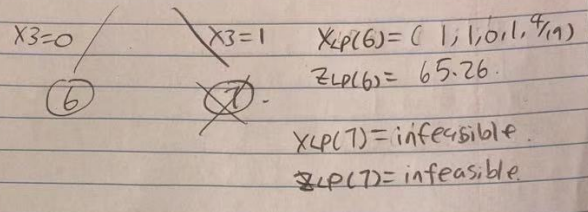 X3=0 X3=1 XLP(6)=( 1,1,0,1,4/19)
ZLP(6)= 65.26.
6 7
XLP(7)=infeasible.
ZLP(7)=infeasible